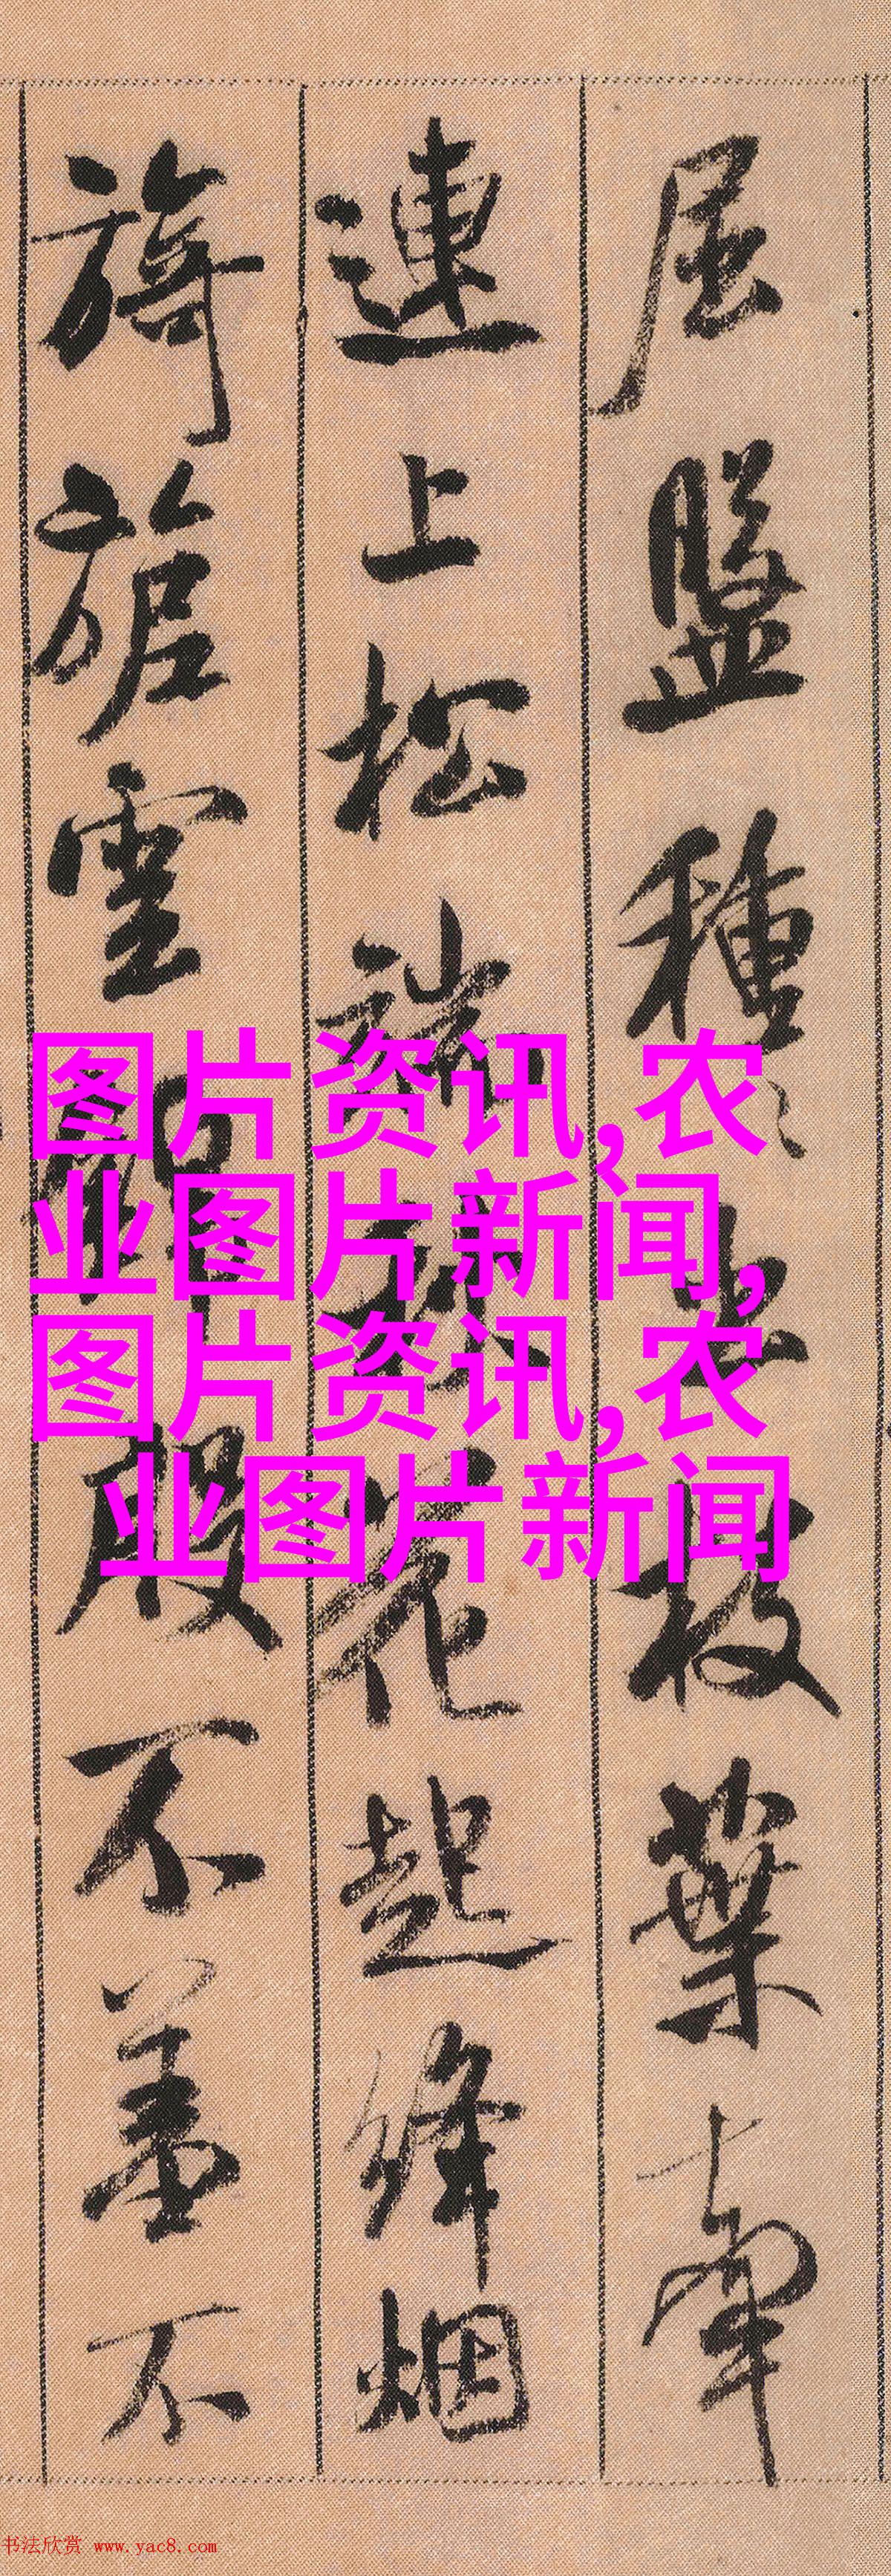 屈盤種々出枝葉牽
連上松端秋花起絳烟
旖旎雲錦殷不羞不
图片资讯,农
业图片新闻,
图片资讯,农
业图片新闻
书法欣赏 www.yac8.com